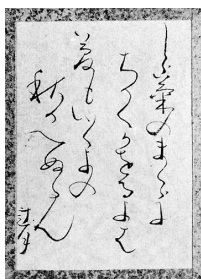 しら菊のまくらに
ちかくかをるよは
夢もいくよの
秋かへぬらん
蓮月